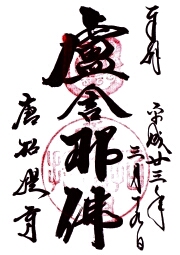 奉拝
平成廿三年
三月十九日
盧舎那佛
唐招提寺